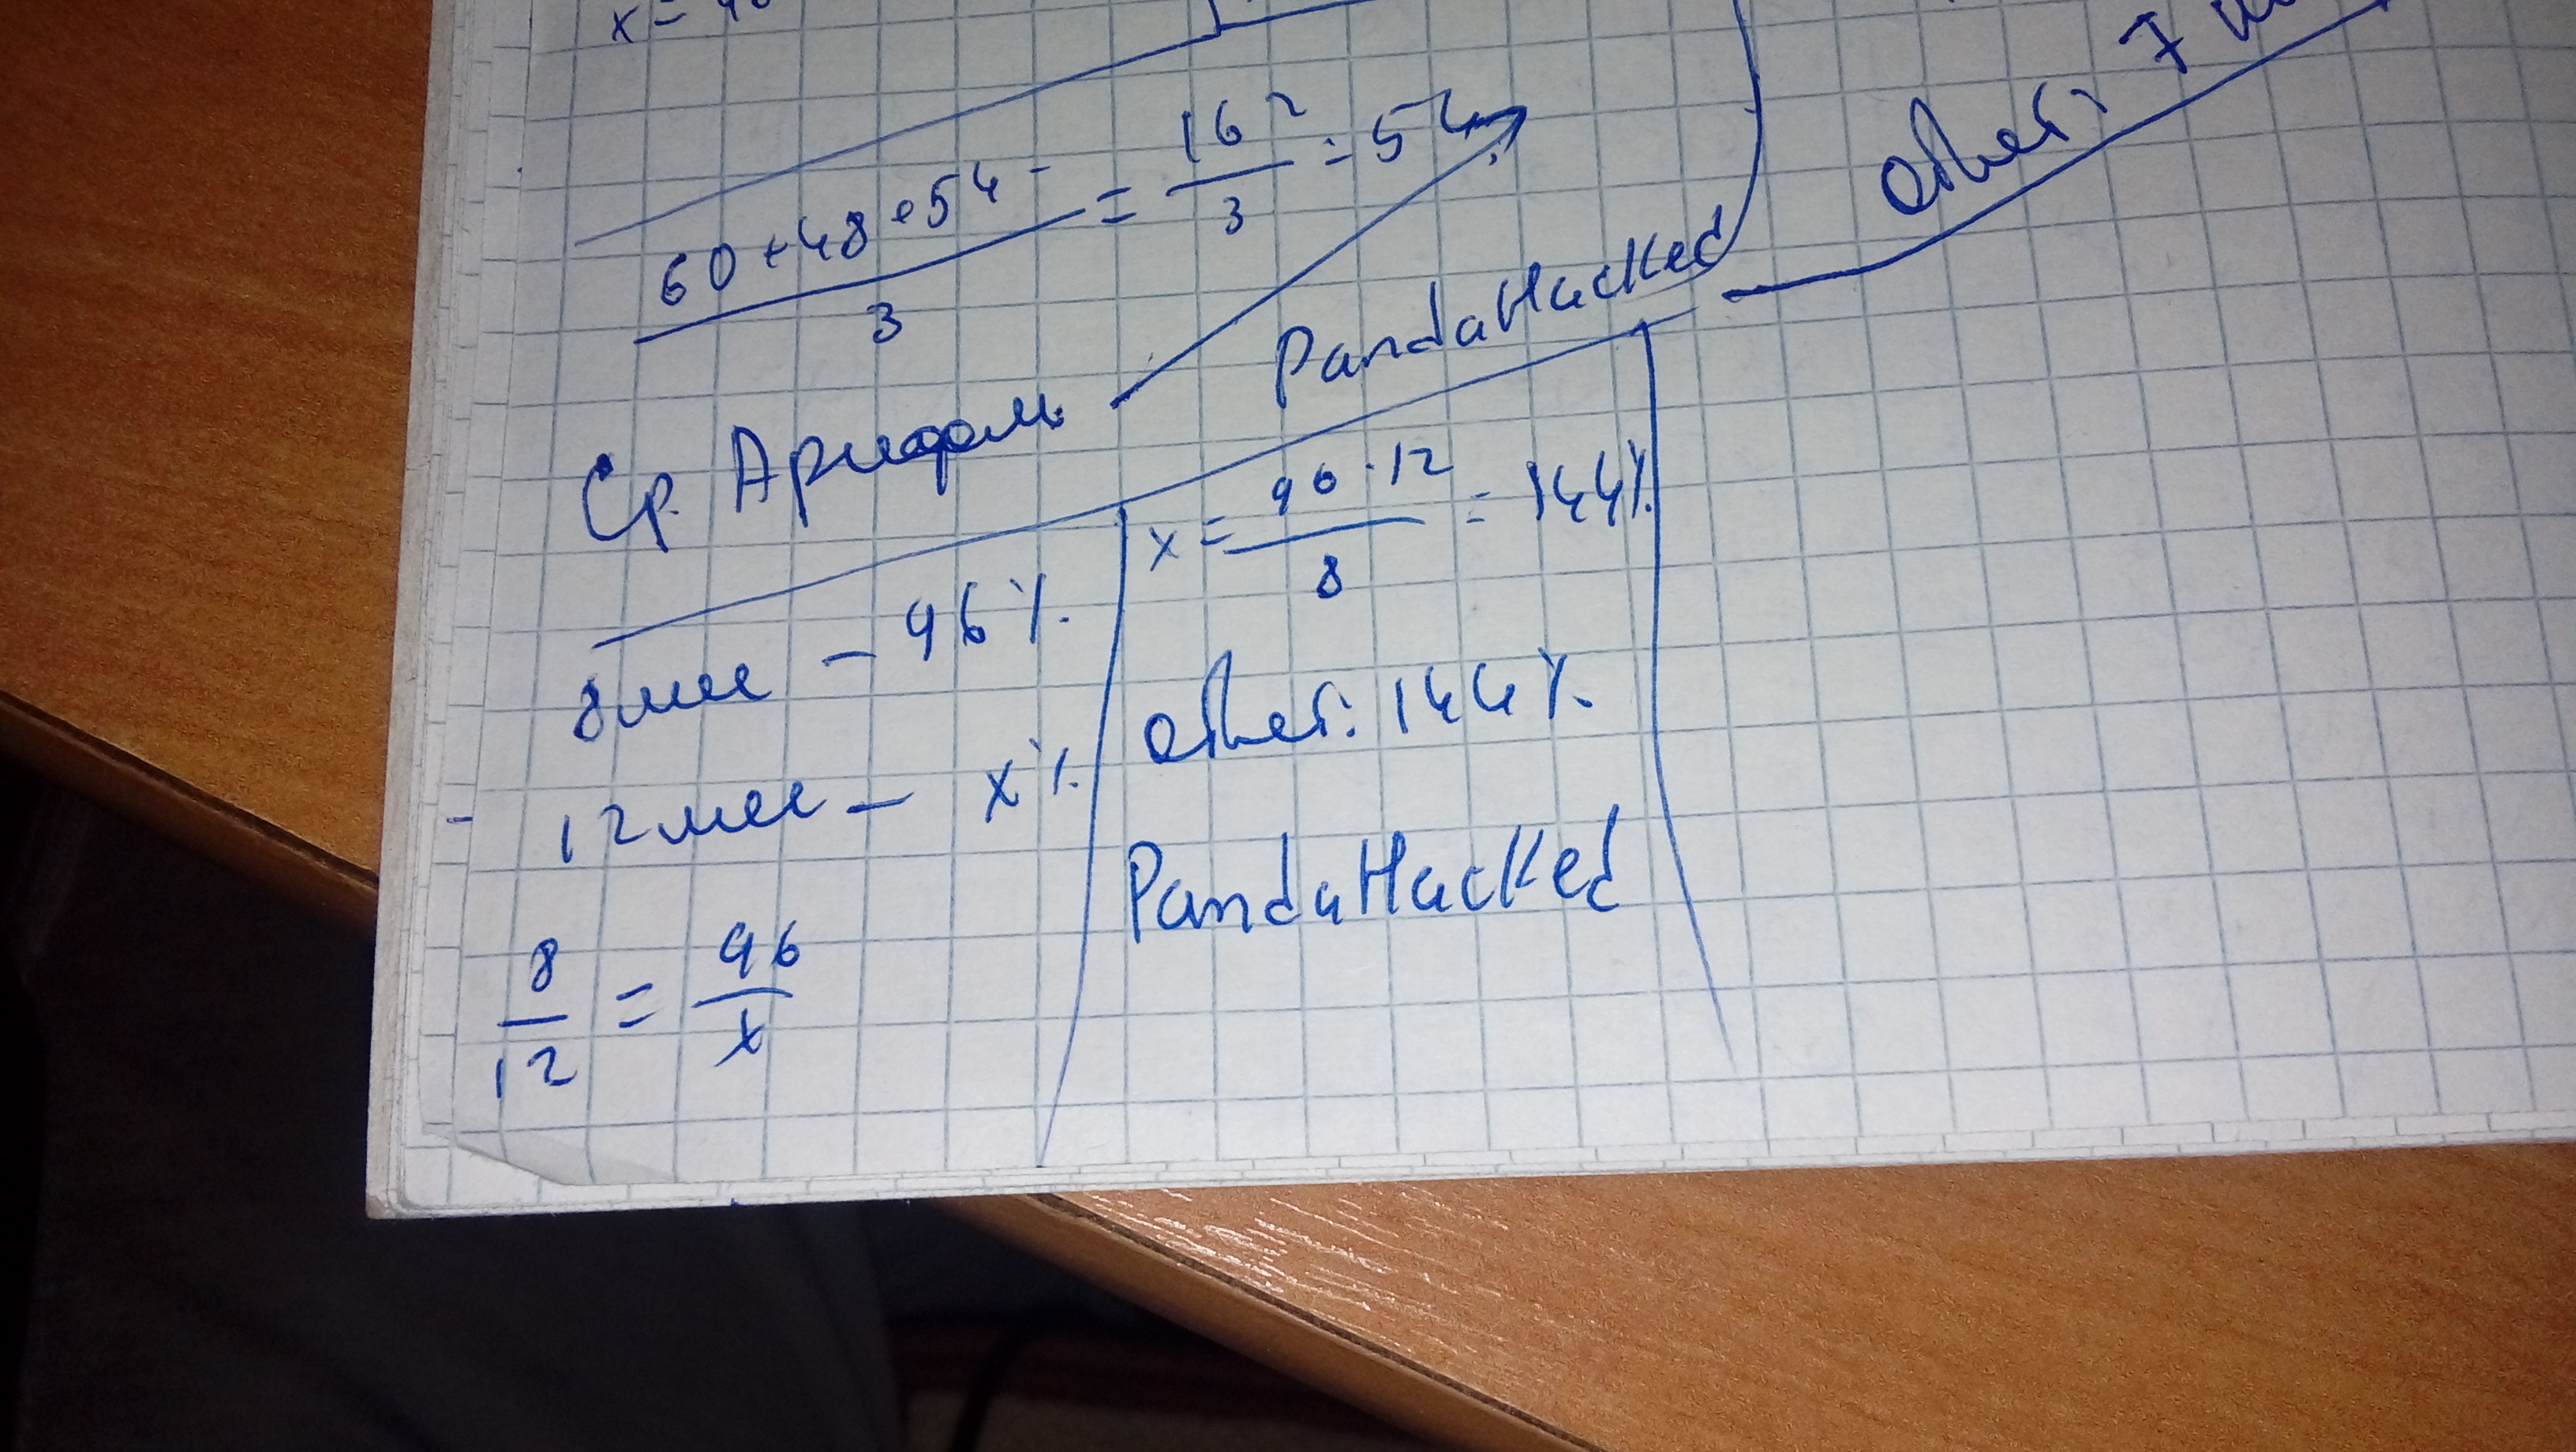 x=4
60+48+54 = 162 = 54
3 3
Ср. Арифм.
PandaHacked
Ответ: 7
8 мес – 96%
12 мес – x%
8 = 96
12 x
x = 96·12 = 144%
8
Ответ: 144%
PandaHacked